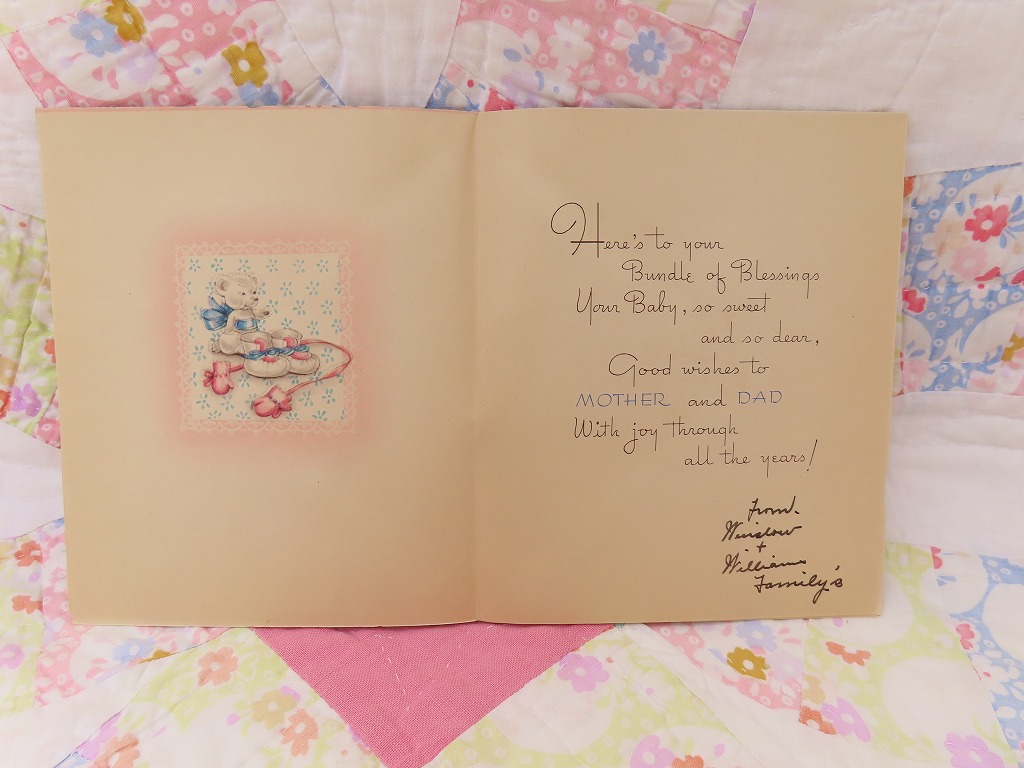 Here's to your
Bundle of Blessings
Your Baby, so sweet
and so dear,
Good wishes to
MOTHER and DAD
With joy through
all the years!
From.
Winslow
+
Williams
Family's